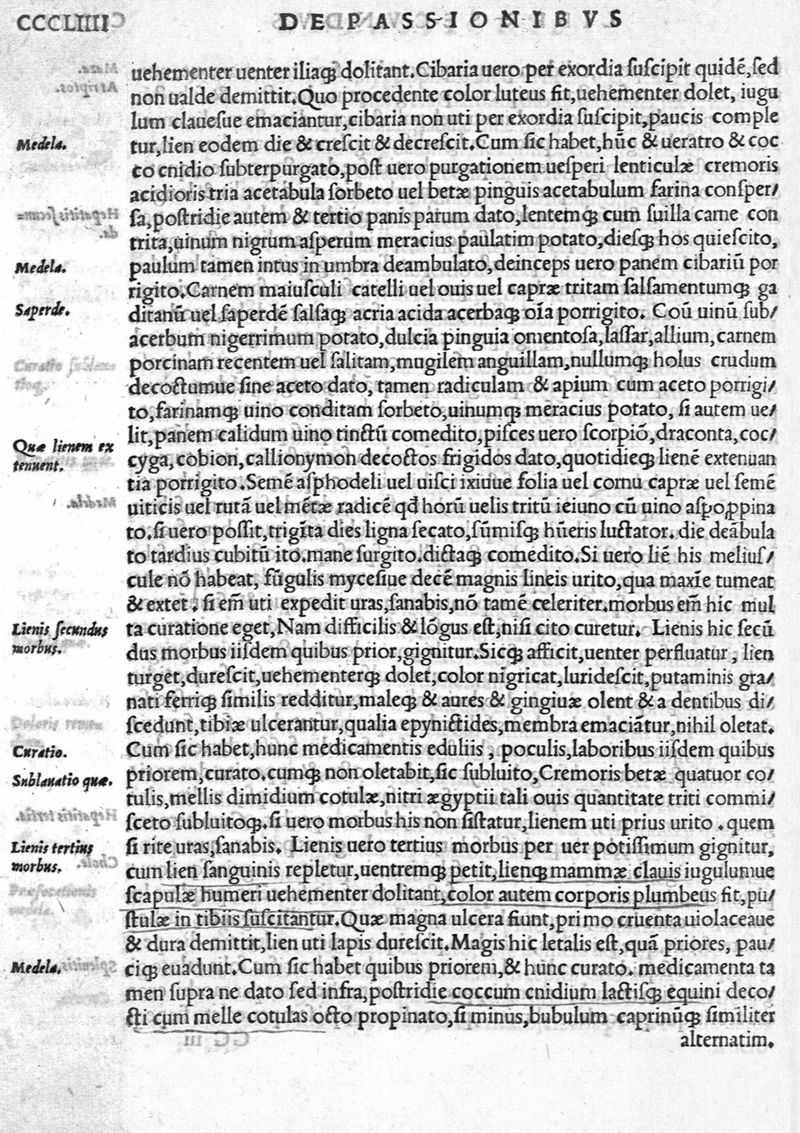 CCCLIIII DE PASSIONIBVS
uehementer uenter iliaq; dolitant. Cibaria uero per exordia ſuſcipit quidē, ſed
non ualde demittit. Quo procedente color luteus fit, uehementer dolet, iugu
lum claueſue emaciantur, cibaria non uti per exordia ſuſcipit, paucis comple
Medela.
tur, lien eodem die & creſcit & decreſcit. Cum ſic habet, hūc & ueratro & coc
co cnidio ſubterpurgato, poſt uero purgationem ueſperi lenticulæ cremoris
acidioris tria acetabula ſorbeto uel betæ pinguis acetabulum farina conſper/
ſa, poſtridie autem & tertio panis parum dato, lentemq; cum ſuilla carne con
trita, uinum nigrum aſperum meracius paulatim potato, dieſq; hos quieſcito,
Medela.
paulum tamen intus in umbra deambulato, deinceps uero panem cibariū por
rigito. Carnem maiuſculi catelli uel ouis uel capræ tritam ſalſamentumq; ga
Saperde.
ditanū uel ſaperdē ſalſaq; acria acida acerbaq; oīa porrigito. Coū uinū ſub/
acerbum nigerrimum potato, dulcia pinguia omentoſa, laſſar, allium, carnem
porcinam recentem uel ſalitam, mugilem anguillam, nullumq; holus crudum
decoctumue ſine aceto dato, tamen radiculam & apium cum aceto porrigi/
to, farinamq; uino conditam ſorbeto, uihumq; meracius potato, ſi autem ue/
Quæ lienem ex
tenuent.
lit, panem calidum uino tinctū comedito, piſces uero ſcorpiō, draconta, coc/
cyga, cobion, callionymon decoctos frigidos dato, quotidieq; lienē extenuan
tia porrigito. Semē aſphodeli uel uiſci ixiuue folia uel cornu capræ uel ſemē
uiticis uel rutā uel mētæ radicē qd horū uelis tritū ieiuno cū uino aſpo, ppina
to. ſi uero poſſit, trigīta dies ligna ſecato, ſūmiſq; hūeris luctator. die deābula
to tardius cubitū ito. mane ſurgito. dictaq; comedito. Si uero liē his meliuſ/
cule nō habeat, fūgulis myceſiue decē magnis lineis urito, qua maxīe tumeat
& extet. ſi em̄ uti expedit uras, ſanabis, nō tamē celeriter. morbus em̄ hic mul
Lienis ſecundus
morbus.
ta curatione eget, Nam difficilis & lōgus eſt, niſi cito curetur. Lienis hic ſecū
dus morbus iiſdem quibus prior, gignitur. Sicq; afficit, uenter perfluatur, lien
turget, dureſcit, uehementerq; dolet, color nigricat, lurideſcit, putaminis gra/
nati ferriq; ſimilis redditur, maleq; & aures & gingiuæ olent & a dentibus di/
ſcedunt, tibiæ ulcerantur, qualia epynictides, membra emaciātur, nihil oletat.
Curatio.
Cum ſic habet, hunc medicamentis eduliis, poculis, laboribus iiſdem quibus
Sublauatio quæ.
priorem, curato. cumq; non oletabit, ſic ſubluito, Cremoris betæ quatuor co/
tulis, mellis dimidium cotulæ, nitri ægyptii tali ouis quantitate triti commi/
ſceto ſubluitoq;. ſi uero morbus his non ſiſtatur, lienem uti prius urito. quem
Lienis tertius
morbus.
ſi rite uras, ſanabis. Lienis uero tertius morbus per uer potiſſimum gignitur,
cum lien ſanguinis repletur, uentremq; petit, lienq; mammæ clauis iugulumue
ſcapulæ humeri uehementer dolitant, color autem corporis plumbeus fit, pu/
ſtulæ in tibiis ſuſcitantur. Quæ magna ulcera fiunt, primo cruenta uiolaceaue
& dura demittit, lien uti lapis dureſcit. Magis hic letalis eſt, quā priores, pau/
Medela.
ciq; euadunt. Cum ſic habet quibus priorem, & hunc curato. medicamenta ta
men ſupra ne dato ſed infra, poſtridie coccum cnidium lactiſq; equini deco/
cti cum melle cotulas octo propinato, ſi minus, bubulum caprinūq; ſimiliter
alternatim.